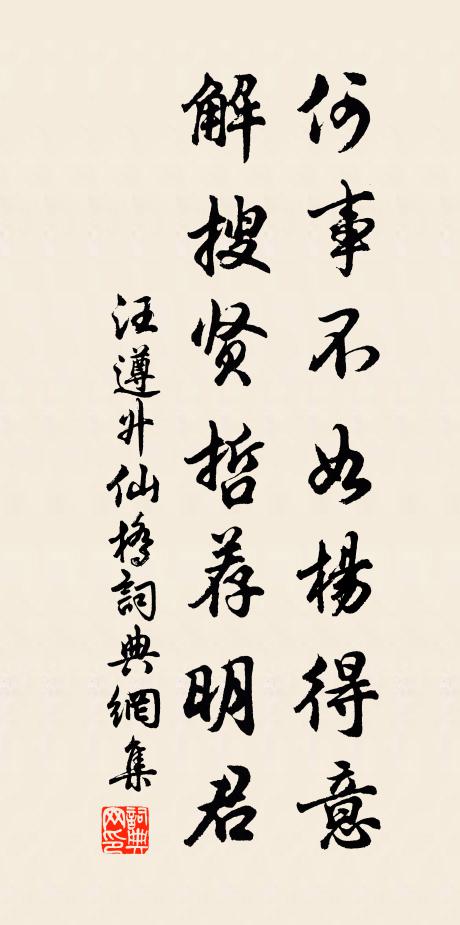 何事不如楊得意
解搜贤哲荐明君
汪遵升仙橋詞典網集
詞典网印